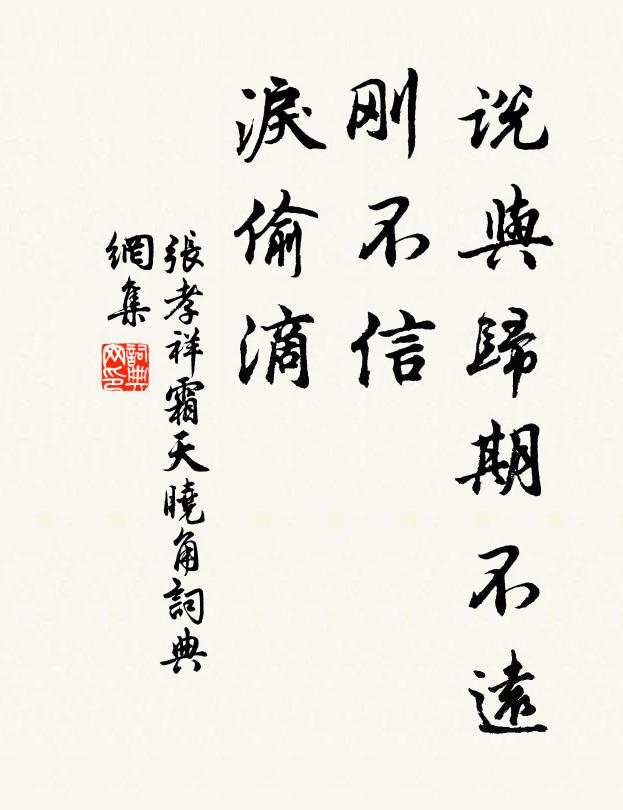 說與歸期不遠
刚不信
淚偷滴
張孝祥霜天曉角詞典
網集
詞典
网印